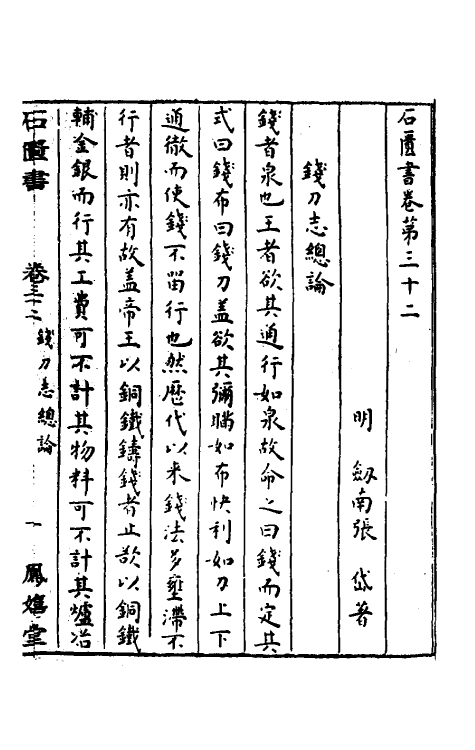 石匱書卷第三十二
明　劔南張　岱著
錢刀志總論
錢者泉也王者欲其通行如泉故命之曰錢而定其
式曰錢布曰錢刀盖欲其彌瞞如布快利如刀上下
通徹而使錢不畱行也然歷代以来錢法多壅滯不
行者則亦有故盖帝王以銅鐵鑄錢者止欲以銅鐵
輔金銀而行其工費可不計其物料可不計其爐冶
石匱書　卷三十二　錢刀志總論　一　鳳嬉堂